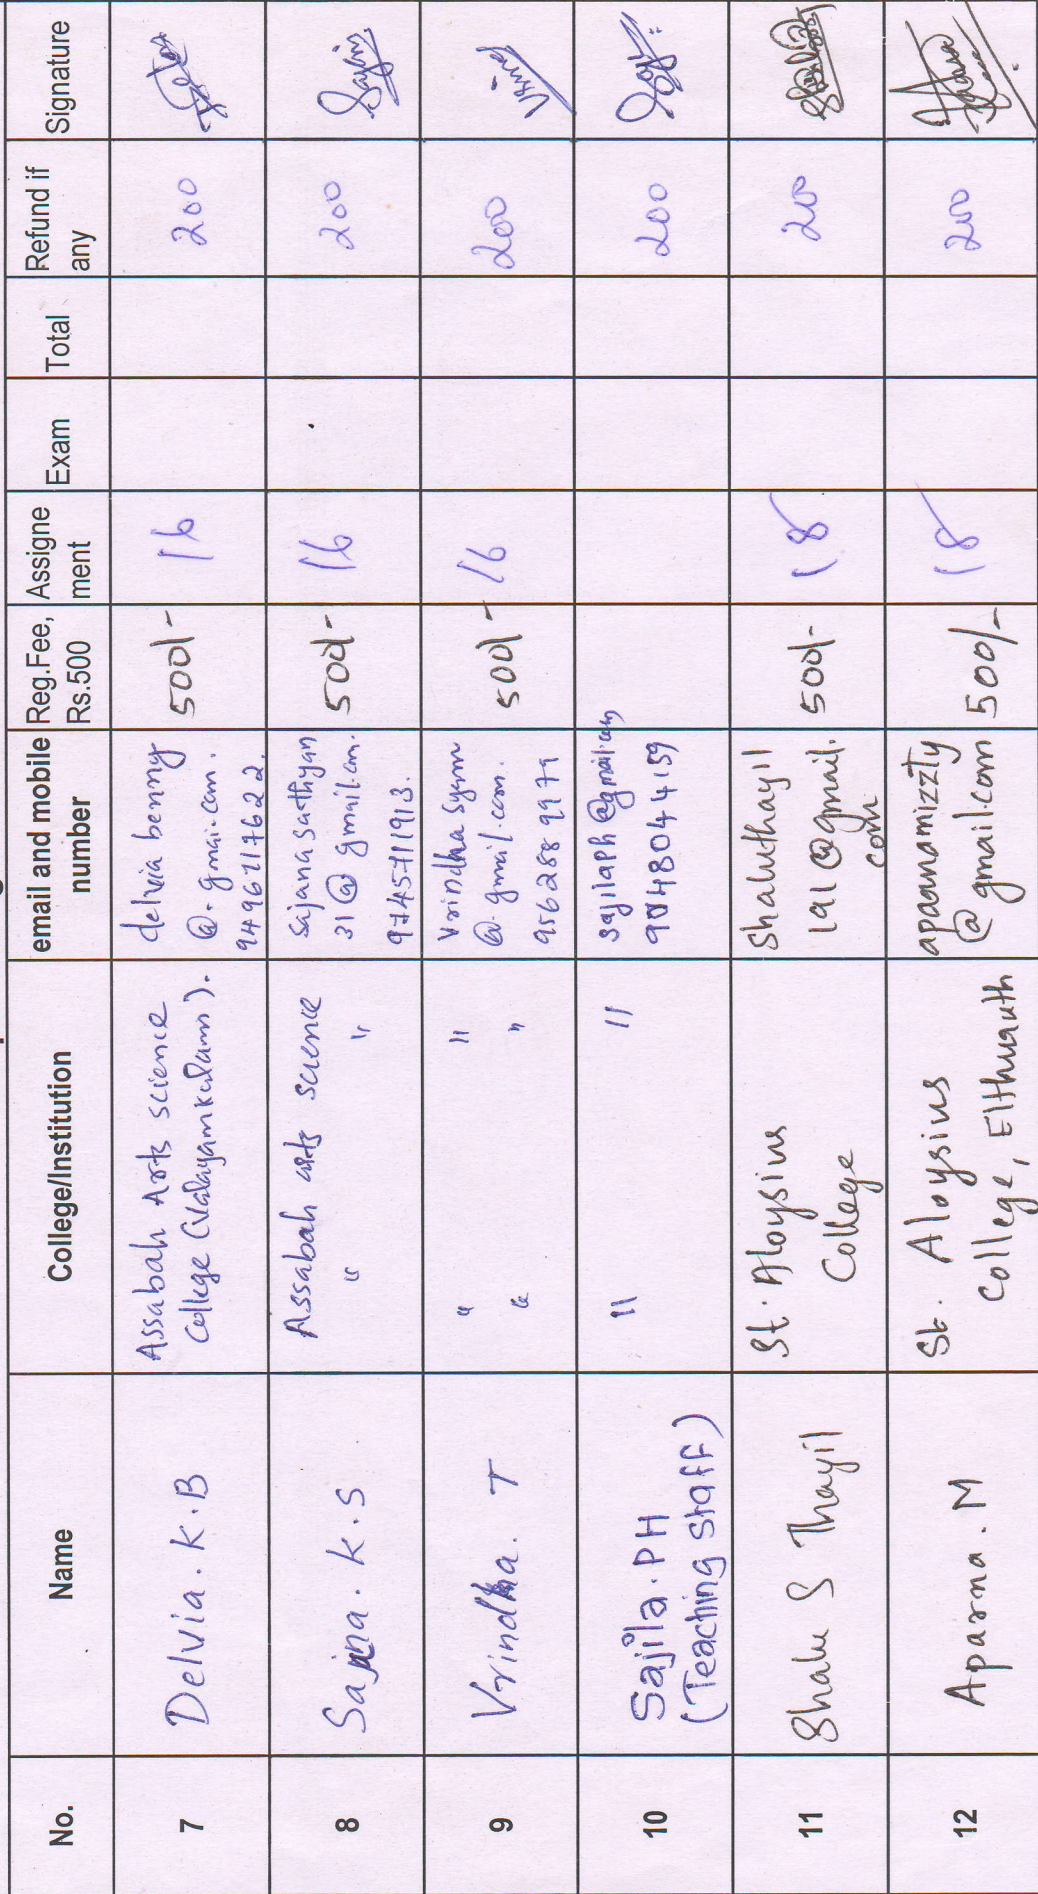 No. Name College/Institution email and mobile number Reg.Fee, Rs.500 Assigne ment Exam Total Refund if any Signature
7 Delvia . K . B Assabah Arts science College (Valayamkulam). delvia benny @. gmai.com. 9496217622. 500/- 16 200
8 Sajna . K . S Assabah arts science " " Sajana sathyan 31 @ gmail.com. 9745711913. 500/- 16 200 Sajna
9 Vrindha . T " " " " @. gmail.com. 9562889979 500/- 16 200
10 Sajila . PH (Teaching staff) " " sajilaph @gmail.com 9048044159 200
11 Shalu S Thayil St . Aloysius College Shaluthayil 191 @gmail. com 500/- 18 200
12 Aparna . M St . Aloysius College, Elthuruth aparnamizzty @ gmail.com 500/- 18 200